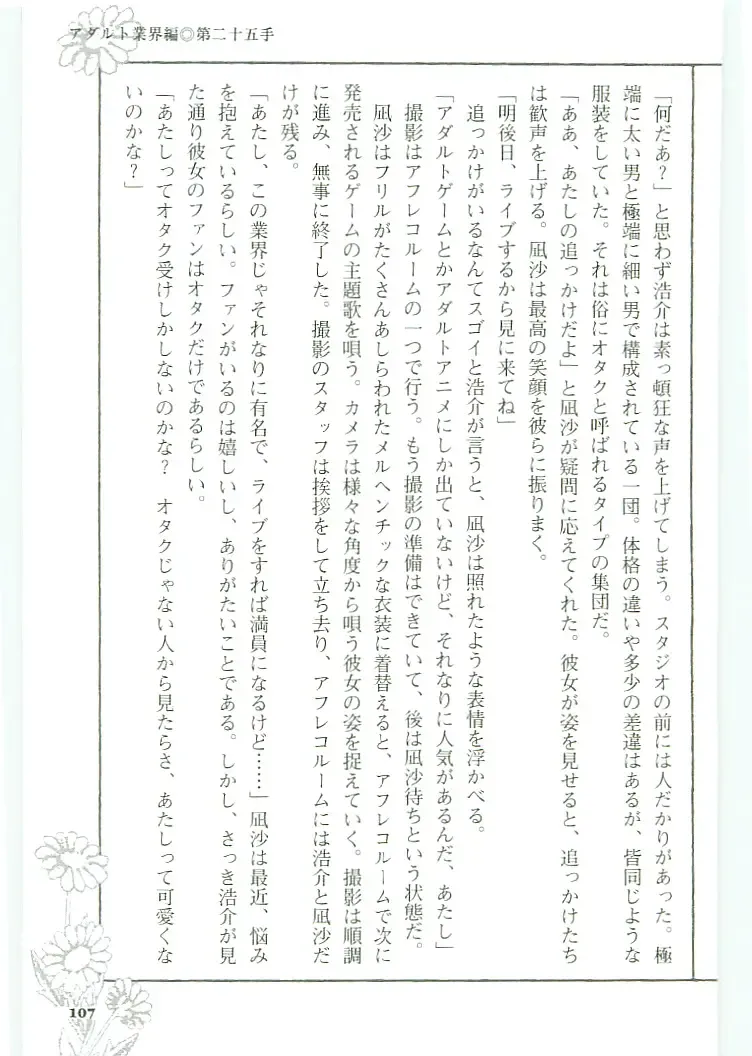 アダルト業界編◎第二十五手
「何だあ？」と思わず浩介は素っ頓狂な声を上げてしまう。スタジオの前には人だかりがあった。極
端に太い男と極端に細い男で構成されている一団。体格の違いや多少の差違はあるが、皆同じような
服装をしていた。それは俗にオタクと呼ばれるタイプの集団だ。
「ああ、あたしの追っかけだよ」と凪沙が疑問に応えてくれた。彼女が姿を見せると、追っかけたち
は歓声を上げる。凪沙は最高の笑顔を彼らに振りまく。
「明後日、ライブするから見に来てね」
追っかけがいるなんてスゴイと浩介が言うと、凪沙は照れたような表情を浮かべる。
「アダルトゲームとかアダルトアニメにしか出ていないけど、それなりに人気があるんだ、あたし」
撮影はアフレコルームの一つで行う。もう撮影の準備はできていて、後は凪沙待ちという状態だ。
凪沙はフリルがたくさんあしらわれたメルヘンチックな衣装に着替えると、アフレコルームで次に
発売されるゲームの主題歌を唄う。カメラは様々な角度から唄う彼女の姿を捉えていく。撮影は順調
に進み、無事に終了した。撮影のスタッフは挨拶をして立ち去り、アフレコルームには浩介と凪沙だ
けが残る。
「あたし、この業界じゃそれなりに有名で、ライブをすれば満員になるけど……」凪沙は最近、悩み
を抱えているらしい。ファンがいるのは嬉しいし、ありがたいことである。しかし、さっき浩介が見
た通り彼女のファンはオタクだけであるらしい。
「あたしってオタク受けしかしないのかな？　オタクじゃない人から見たらさ、あたしって可愛くな
いのかな？」
107